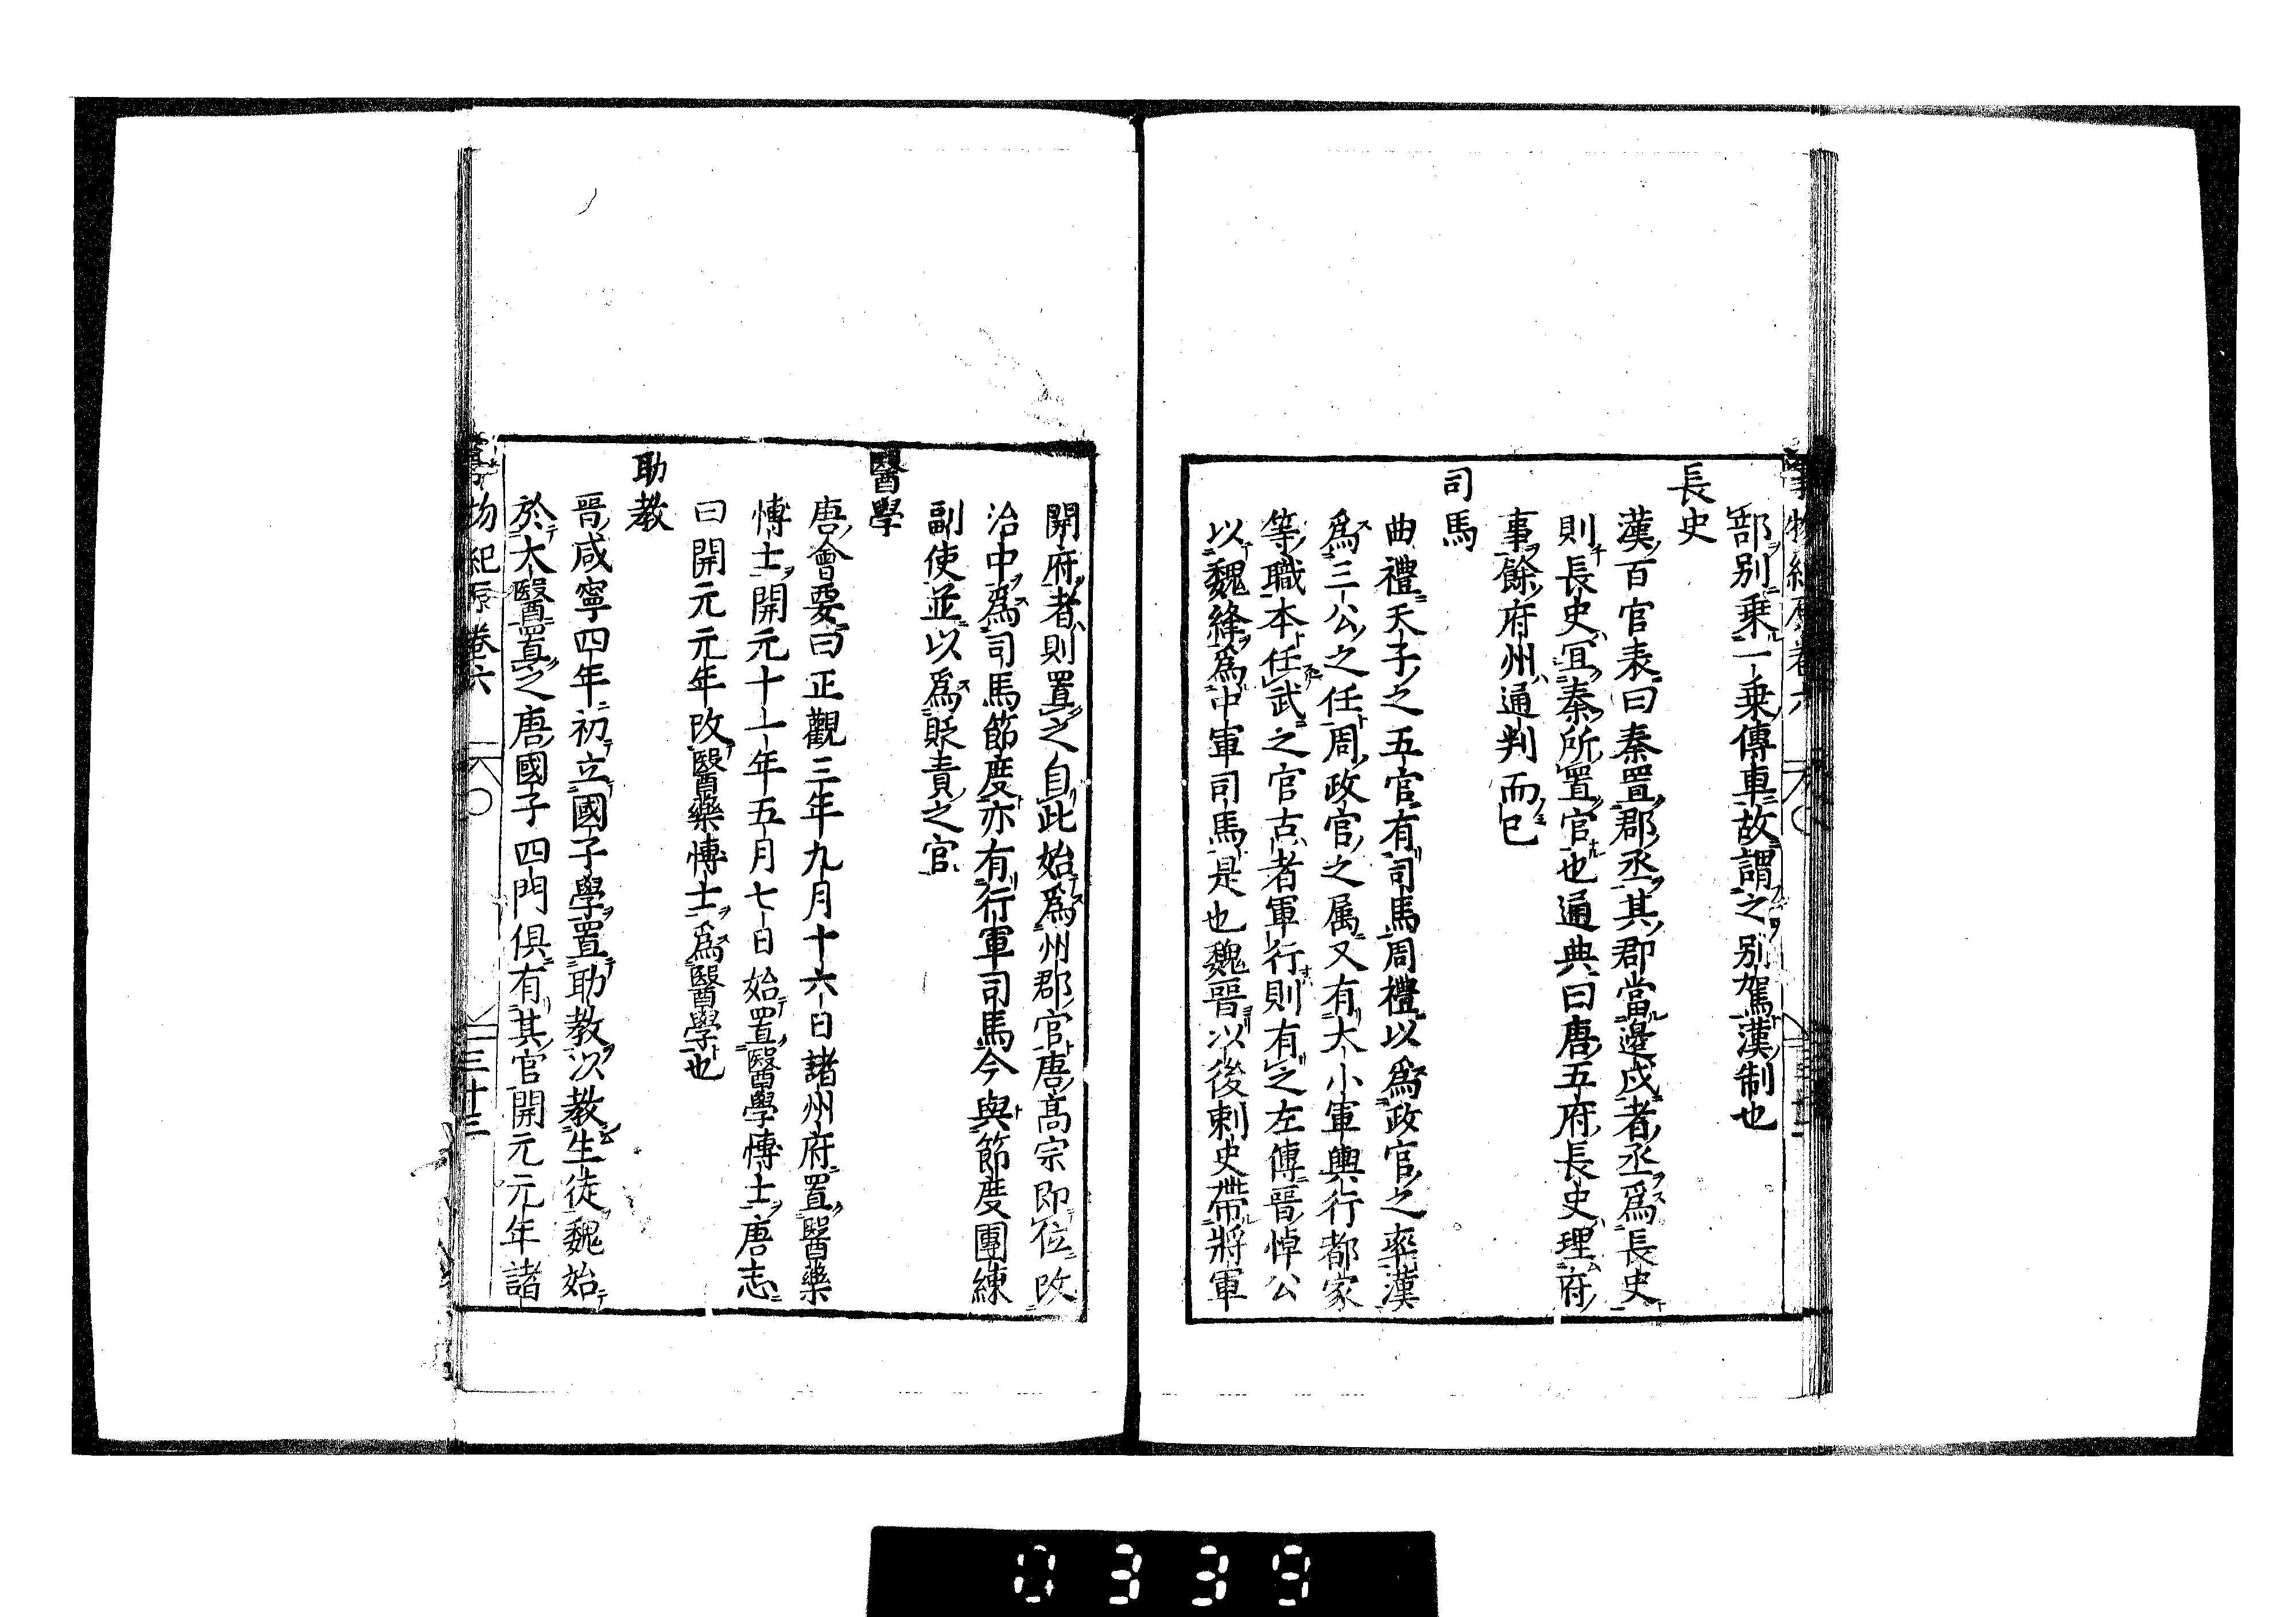 部別乗一乗傳車故謂之別駕漢制也
長史
漢百官表曰秦置郡丞其郡當邊戍者丞爲長史
則長史冝秦所置官也通典曰唐五府長史理府
事餘府州通判而已
司馬
曲禮天子之五官有司馬周禮以爲政官之率漢
爲三公之任周政官之属又有大小軍輿行都家
等職本任武之官古者軍行則有之左傳晉悼公
以魏絳爲中軍司馬是也魏晉以後刺史帶將軍
開府者則置之自此始爲州郡官唐髙宗即位改
治中爲司馬節度亦有行軍司馬今與節度團練
副使並以爲貶責之官
醫學
唐會要曰正觀三年九月十六日諸州府置醫藥
博士開元十一年五月七日始置醫學博士唐志
曰開元元年改醫藥博士爲醫學也
助教
晉咸寧四年初立國子學置助教以教生徒魏始
於太醫置之唐國子四門俱有其官開元元年諸
事物紀原卷六 三十三
0339